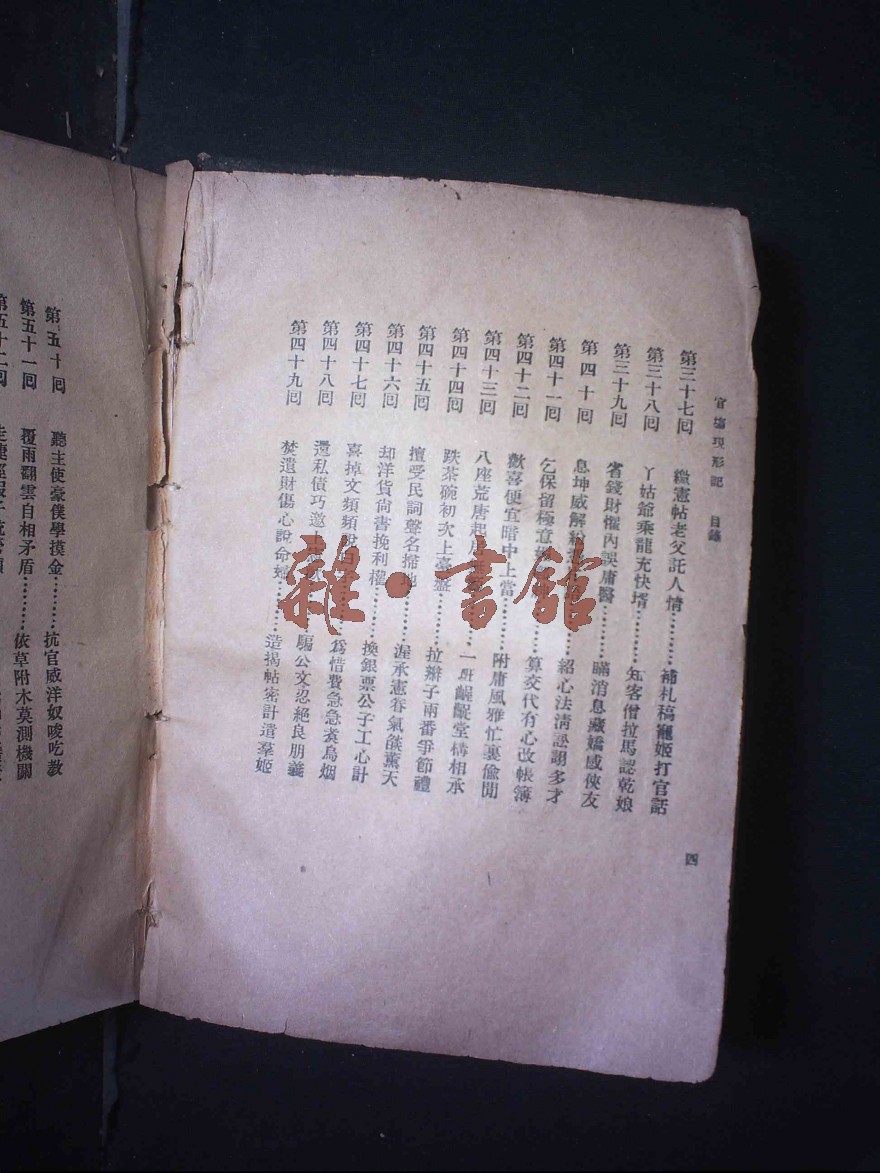 官場現形記 目錄
第三十七回 繳憲帖老父託人情………補札稿寵姬打官話
第三十八回 丫姑爺乘龍充快壻………知客僧拉馬認乾娘
第三十九回 省錢財懼內誤庸醫………瞞消息藏嬌感俠友
第四十回 息坤威解紛………紹心法清訟詡多才
第四十一回 乞保留極意………算交代有心改帳簿
第四十二回 歡喜便宜暗中上當………附庸風雅忙裏偷閒
第四十三回 八座荒唐起居………一班齷齪堂構相承
第四十四回 跌茶碗初次上臺盤………拉辮子兩番爭節禮
第四十五回 擅受民詞聲名掃地………渥承憲眷氣燄薰天
第四十六回 却洋貨尙書挽利權………換銀票公子工心計
第四十七回 喜掉文頻頻說………爲惜費急急煮烏烟
第四十八回 還私債巧邀上………騙公文忍絕良朋義
第四十九回 焚遺財傷心說命婦………造揭帖密計遣羣姬
四
第五十回 聽主使豪僕學摸金………抗官威洋奴唆吃教
第五十一回 覆雨翻雲自相矛盾………依草附木莫測機關
第五十二回
雜·書館